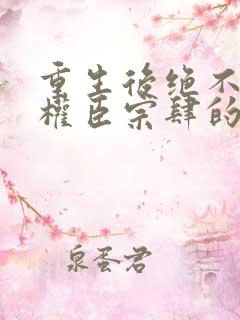 重生後绝不
權臣宗肆的
泉蛋君